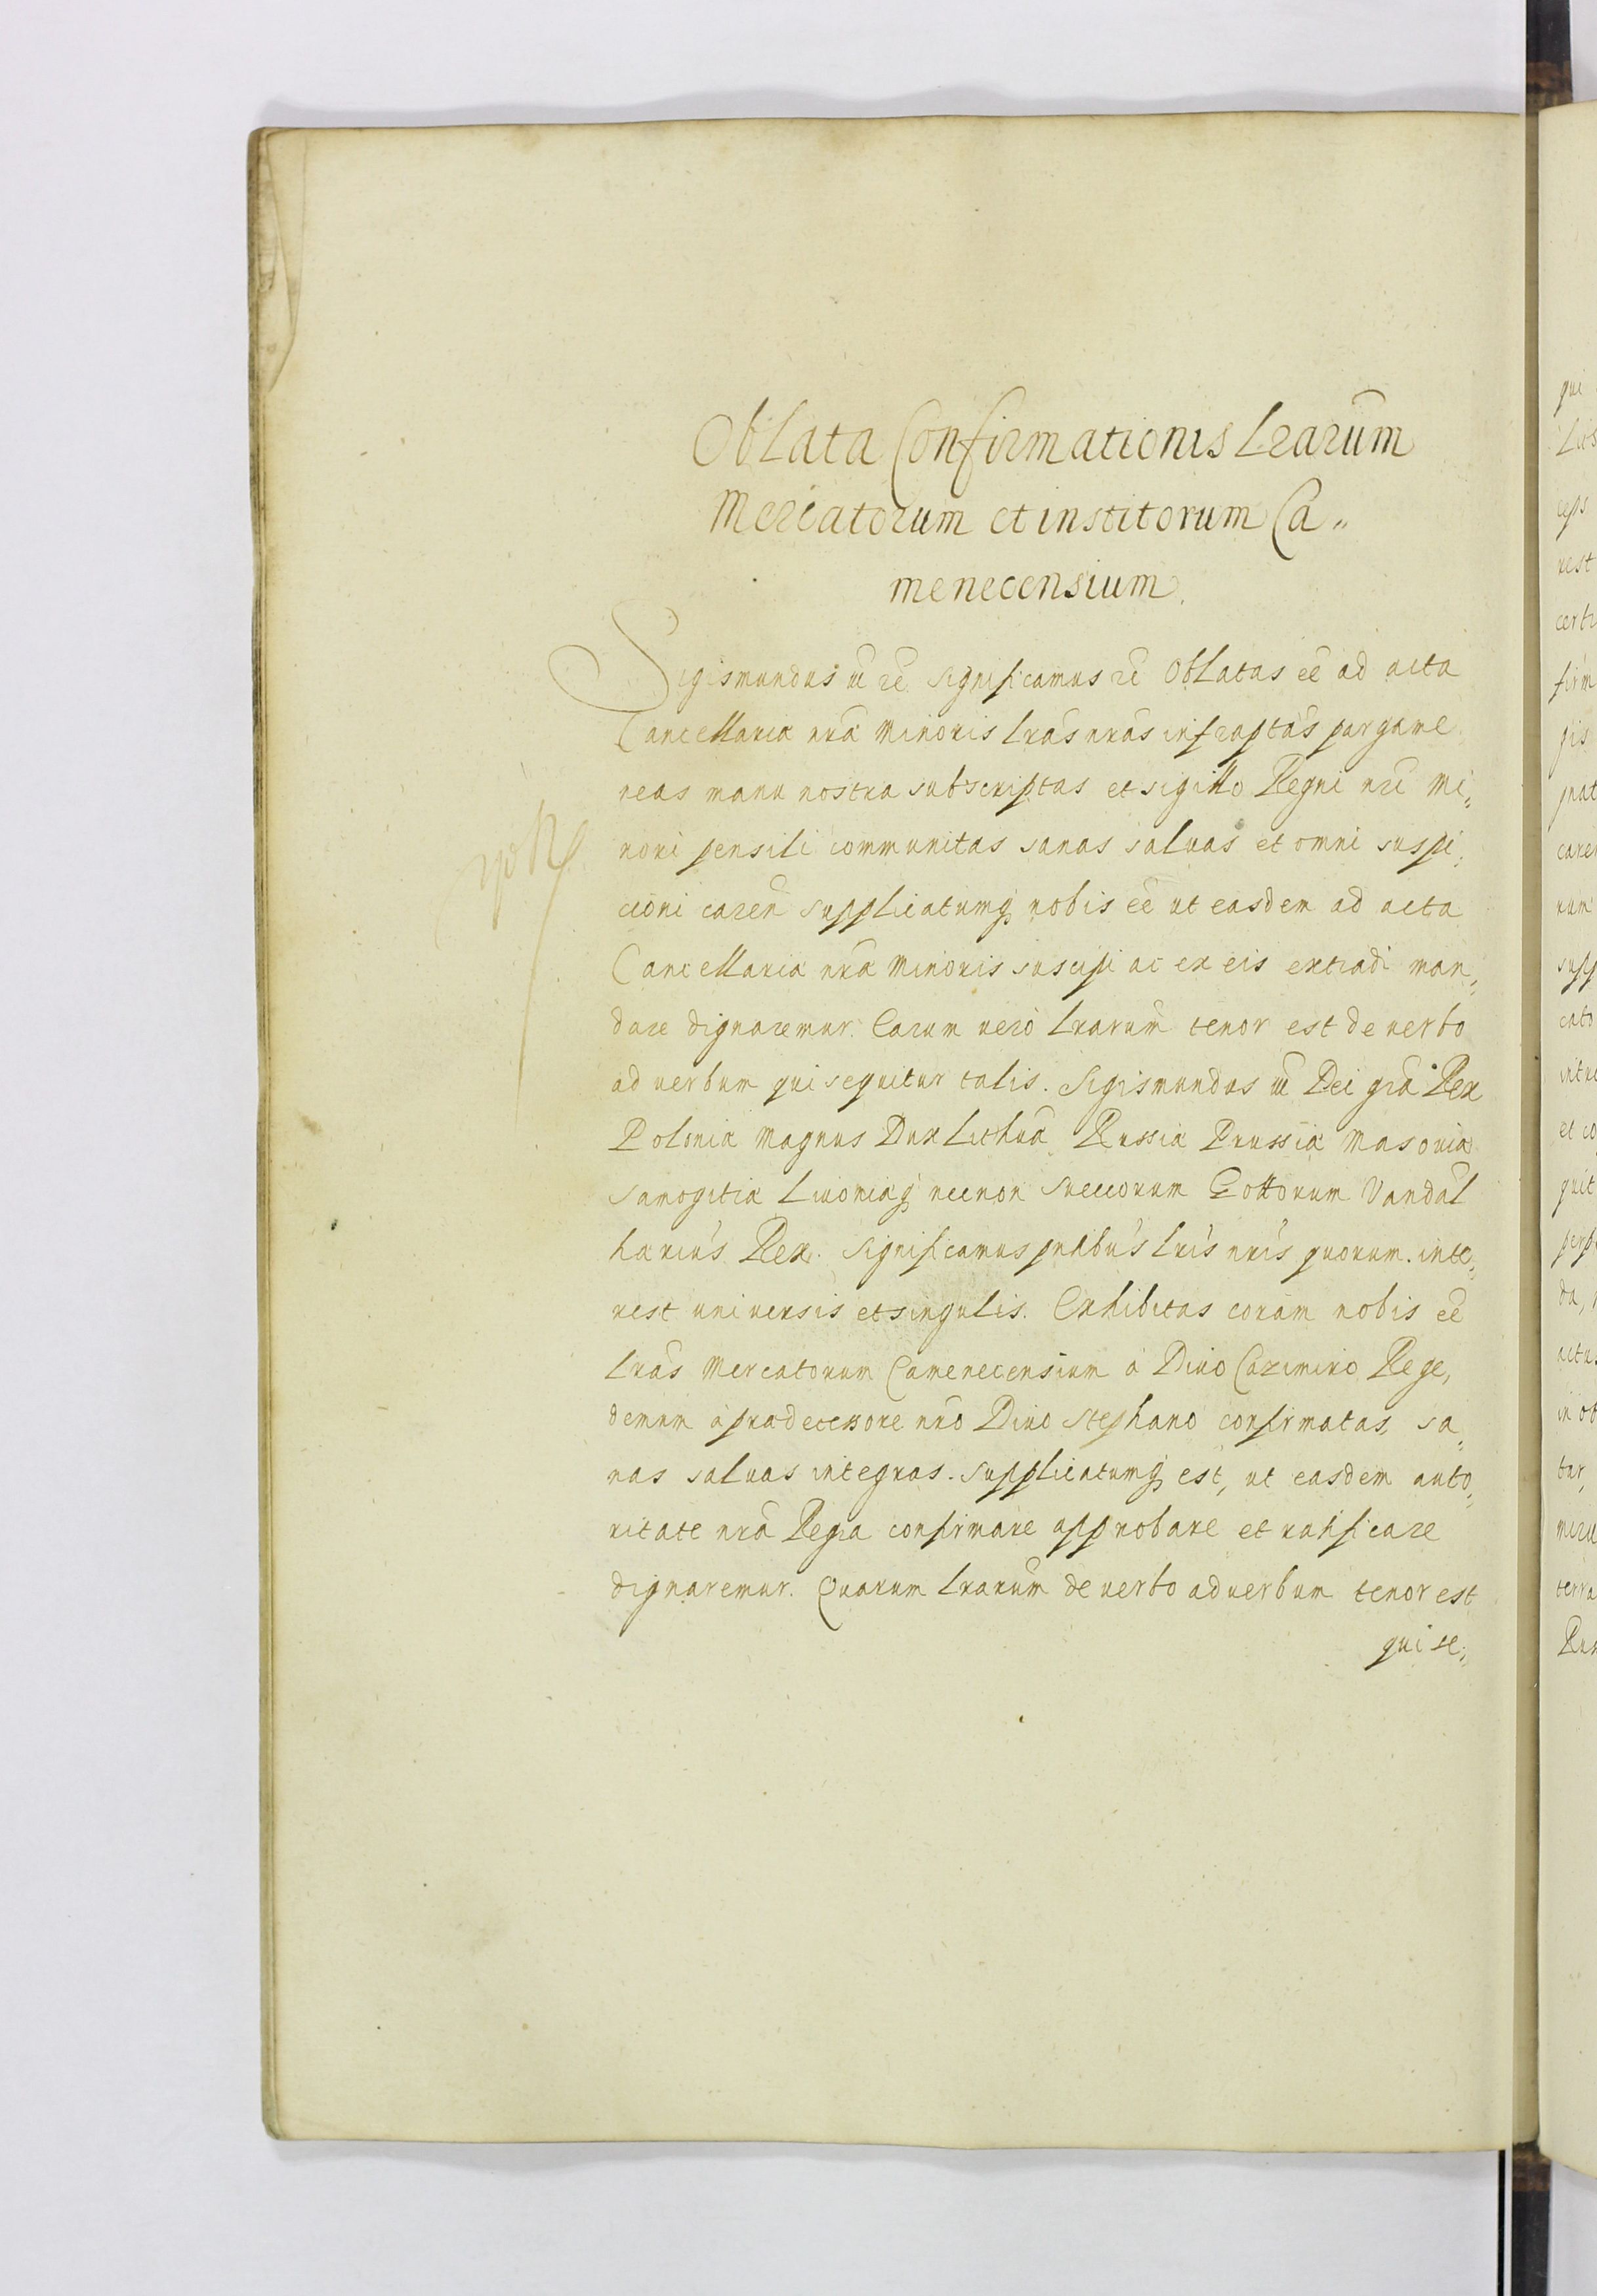 Oblata Confirmationis Lrarum̃
Mercatorum et institorum Ca„
menecensium.
Sigismundus III rc̃. Significamus rc̃ Oblatas eẽ ad acta
Cancellariæ nr̃æ Minoris Lr̃as nr̃as infrap̃tas pargame„
neas manu nostra subscriptas et sigillo Regni nr̃i Mi„
nori pensili communitas sanas saluas et omni suspi„
cioni careñ supplicatumq; nobis eẽ ut easdem ad acta
Cancellariæ nr̃æ Minoris suscipi ac ex eis extradi man„
dare dignaremur. Earum uerò Lrarum̃ tenor est de uerbo
ad uerbum qui sequitur talis. Sigismundus III Dei gr̃a Rex
Poloniæ Magnus Dux Lithuã. Russiæ Prussiæ Masouiæ
Samogitiæ Liuoniæq; necnon Sueccorum Gottorum Vandal̃
hariu's Rex. Significamus pñtibus Lr̃is nr̃is quorum. inte„
rest uniuersis et singulis. Exhibitas coram nobis eẽ
Lr̃as Mercatorum Camenecensium à Diuo Cazimiro Rege,
demum à prædecessore nr̃o Diuo Stephano confirmatas, sa„
nas saluas integras. Supplicatumq; est, ut easdem auto„
ritate nr̃a Regia confirmare approbare et ratificare
dignaremur. Quarum Lrarum̃ de uerbo ad uerbum tenor est
qui se„